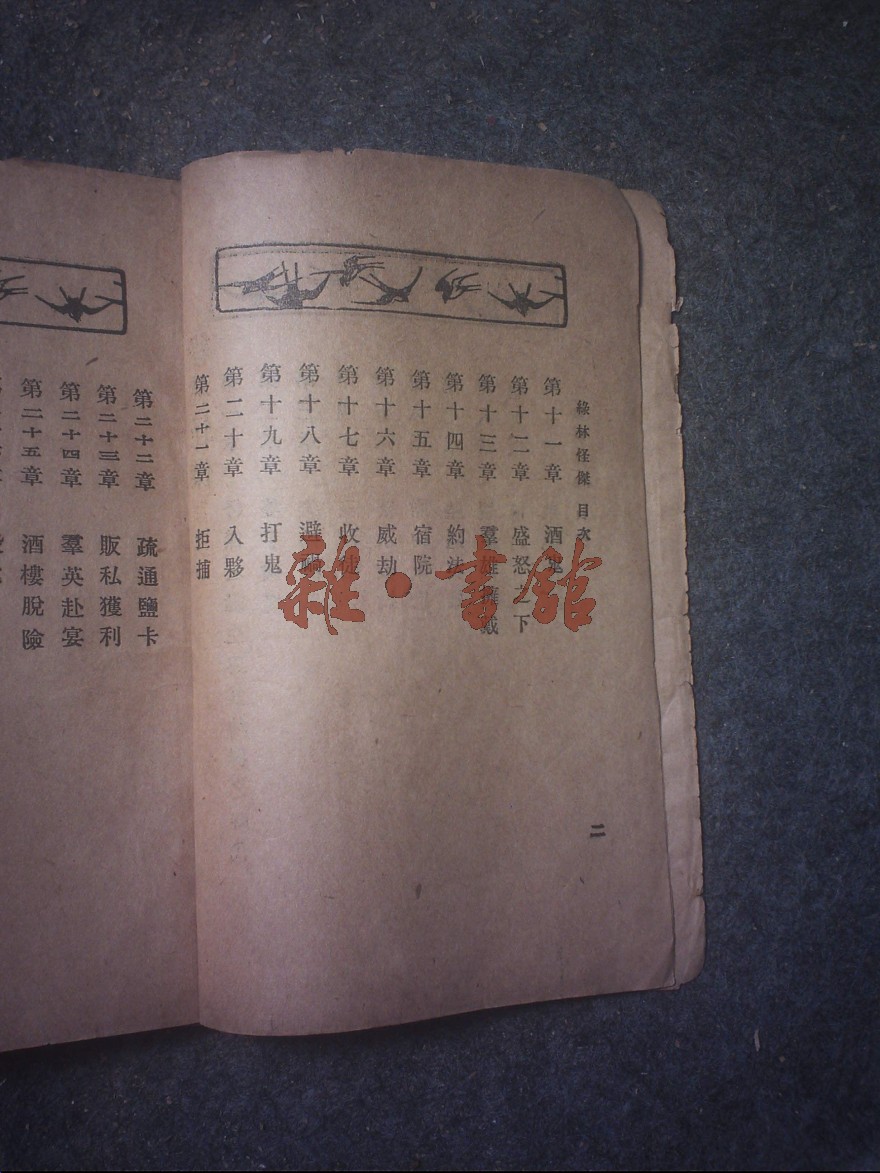 綠林怪傑 目次
第十一章 酒鬼
第十二章 盛怒之下
第十三章 羣雄擁戴
第十四章 約法
第十五章 宿院
第十六章 威劫
第十七章 收徒
第十八章 避禍
第十九章 打鬼
第二十章 入夥
第二十一章 拒捕
二
第二十二章 疏通鹽卡
第二十三章 販私獲利
第二十四章 羣英赴宴
第二十五章 酒樓脫險
雜·書館